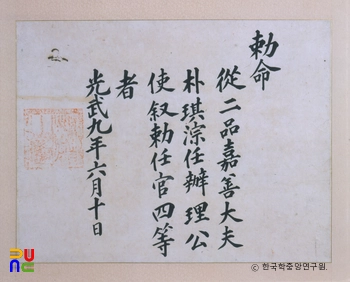 勅命
從二品嘉善大夫
朴琪淙任辦理公
使叙勅任官四等
者
光武九年六月十日
© 한국학중앙연구원.